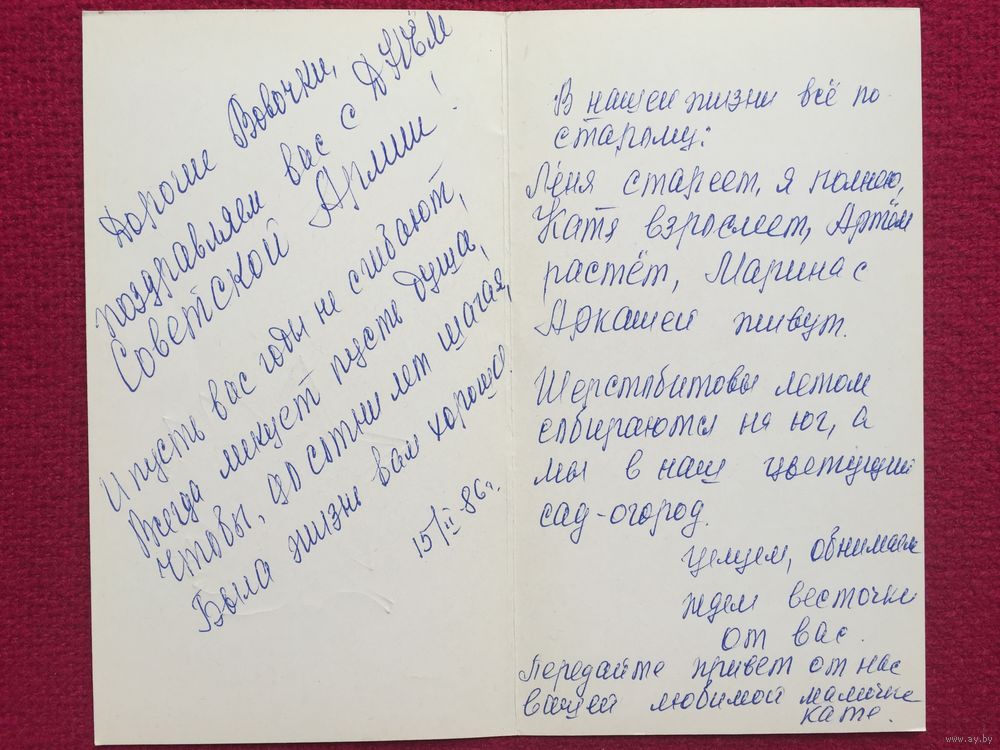 Дорогие Вовочки,
поздравляем вас с Днём
Советской Армии!
И пусть вас годы не сгибают,
Всегда ликует пусть душа,
Чтобы, до сотни лет шагая,
Была жизнь вам хороша.
15/II-86г.
В нашей жизни всё по
старому:
Лёня стареет, я полнею,
Катя взрослеет, Артём
растёт, Марина с
Аркашей живут.
Шерстобитовы летом
собираются на юг, а
мы в наш цветущий
сад-огород.
Целуем, обнимаем
ждем весточки
от вас.
Передайте привет от нас
вашей любимой мамочке
Кате.
www.ay.by